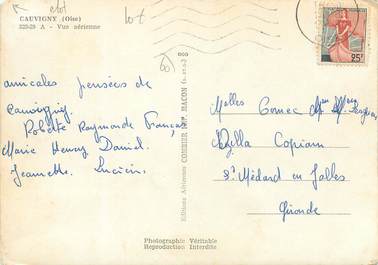 CAUVIGNY (Oise)
325-28 A - Vue aérienne
lot
60
25F
amicales pensées de
Cauvigny.
Roberte Raymonde François
Marie Henry Daniel.
Jeannette. Lucien.
Melles
Copian
St Médard en Jalles
Gironde
Editions Aériennes COMBIER IMP. MACON
Photographie Véritable
Reproduction Interdite